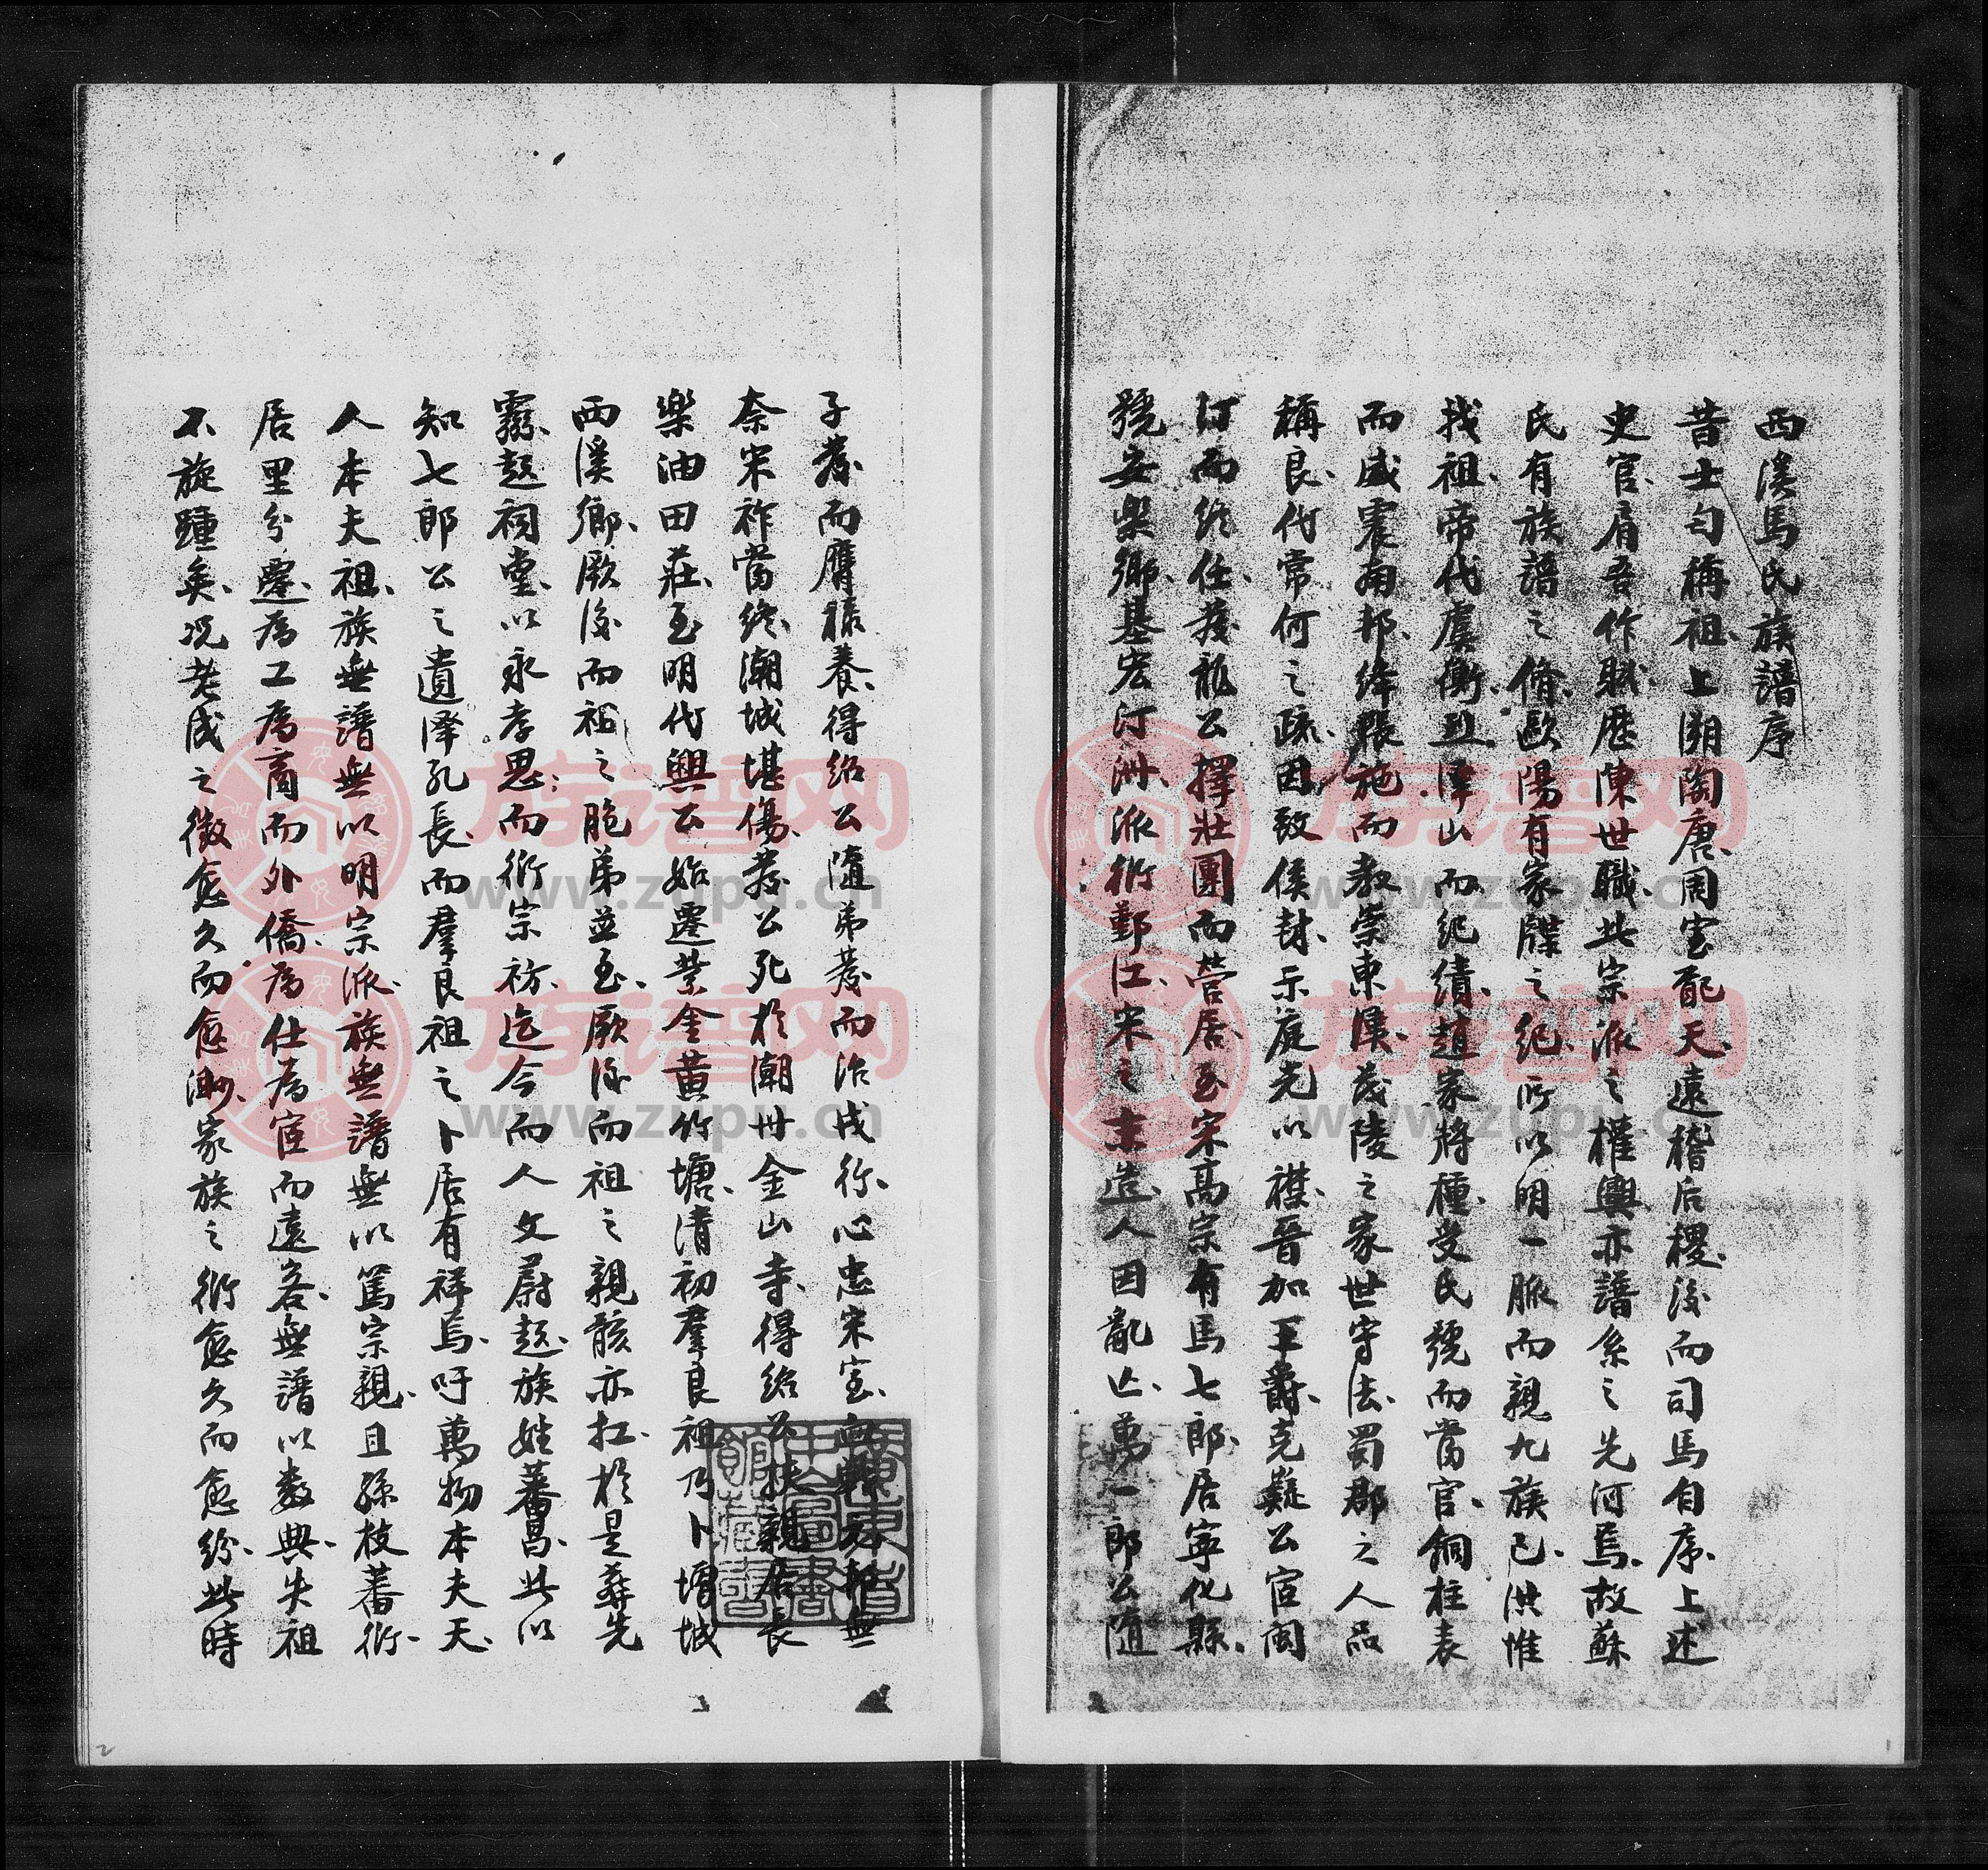 西溪馬氏族譜序
昔士匄稱祖上溯陶唐周室配天遠稽后稷後而司馬自序上述
史官肩吾作賦歷陳世職此宗派之權輿亦譜系之先河焉故蘇
氏有族譜之脩歐陽有家牒之紀所以明一脈而親九族已洪惟
我祖帝代虞衡烈澤山而紀績趙家將種受氏號而當官銅柱表
而威震南邦絳帳施而教崇東漢茂陵之家世守法蜀郡之人品
稱良代常何之疏因致侯封示庭光以襟晉加王爵克疑公宦閩
汀而終仕茂龍公擇壯團而營居至宋高宗有馬七郎居寧化縣
號安樂鄉基宏汀洲派衍鄞江宋之末造人因亂亡萬一郎公隨
子發而膺祿養得紹公隨弟發而治戎行心忠宋室血戰方
奈宋祚當終潮城堪傷發公死於潮州金山寺得紹公扶親居長
樂油田莊至明代興公始遷業金黃竹塘清初羣良祖乃卜增城
西溪鄉厥後而祖之胞弟並至厥後而祖之親骸亦扛於是葬先
靈起祠堂以永孝思而衍宗祊迄今而人文蔚起族姓蕃昌此以
知七郎公之遺澤孔長而羣良祖之卜居有祥焉吁萬物本夫天
人本夫祖族無譜無以明宗派族無譜無以篤宗親且孫枝蕃衍
居里分遷為工為商而外僑為仕為宦而遠客無譜以數典失祖
不旋踵矣况老成之徵愈久而愈渺家族之衍愈久而愈紛此時
族谱网
www.zupu.cn
族谱网
www.zupu.cn
族谱网
www.zupu.cn
族谱网
www.zupu.cn
廣東省
中山圖書
館藏書
2
1